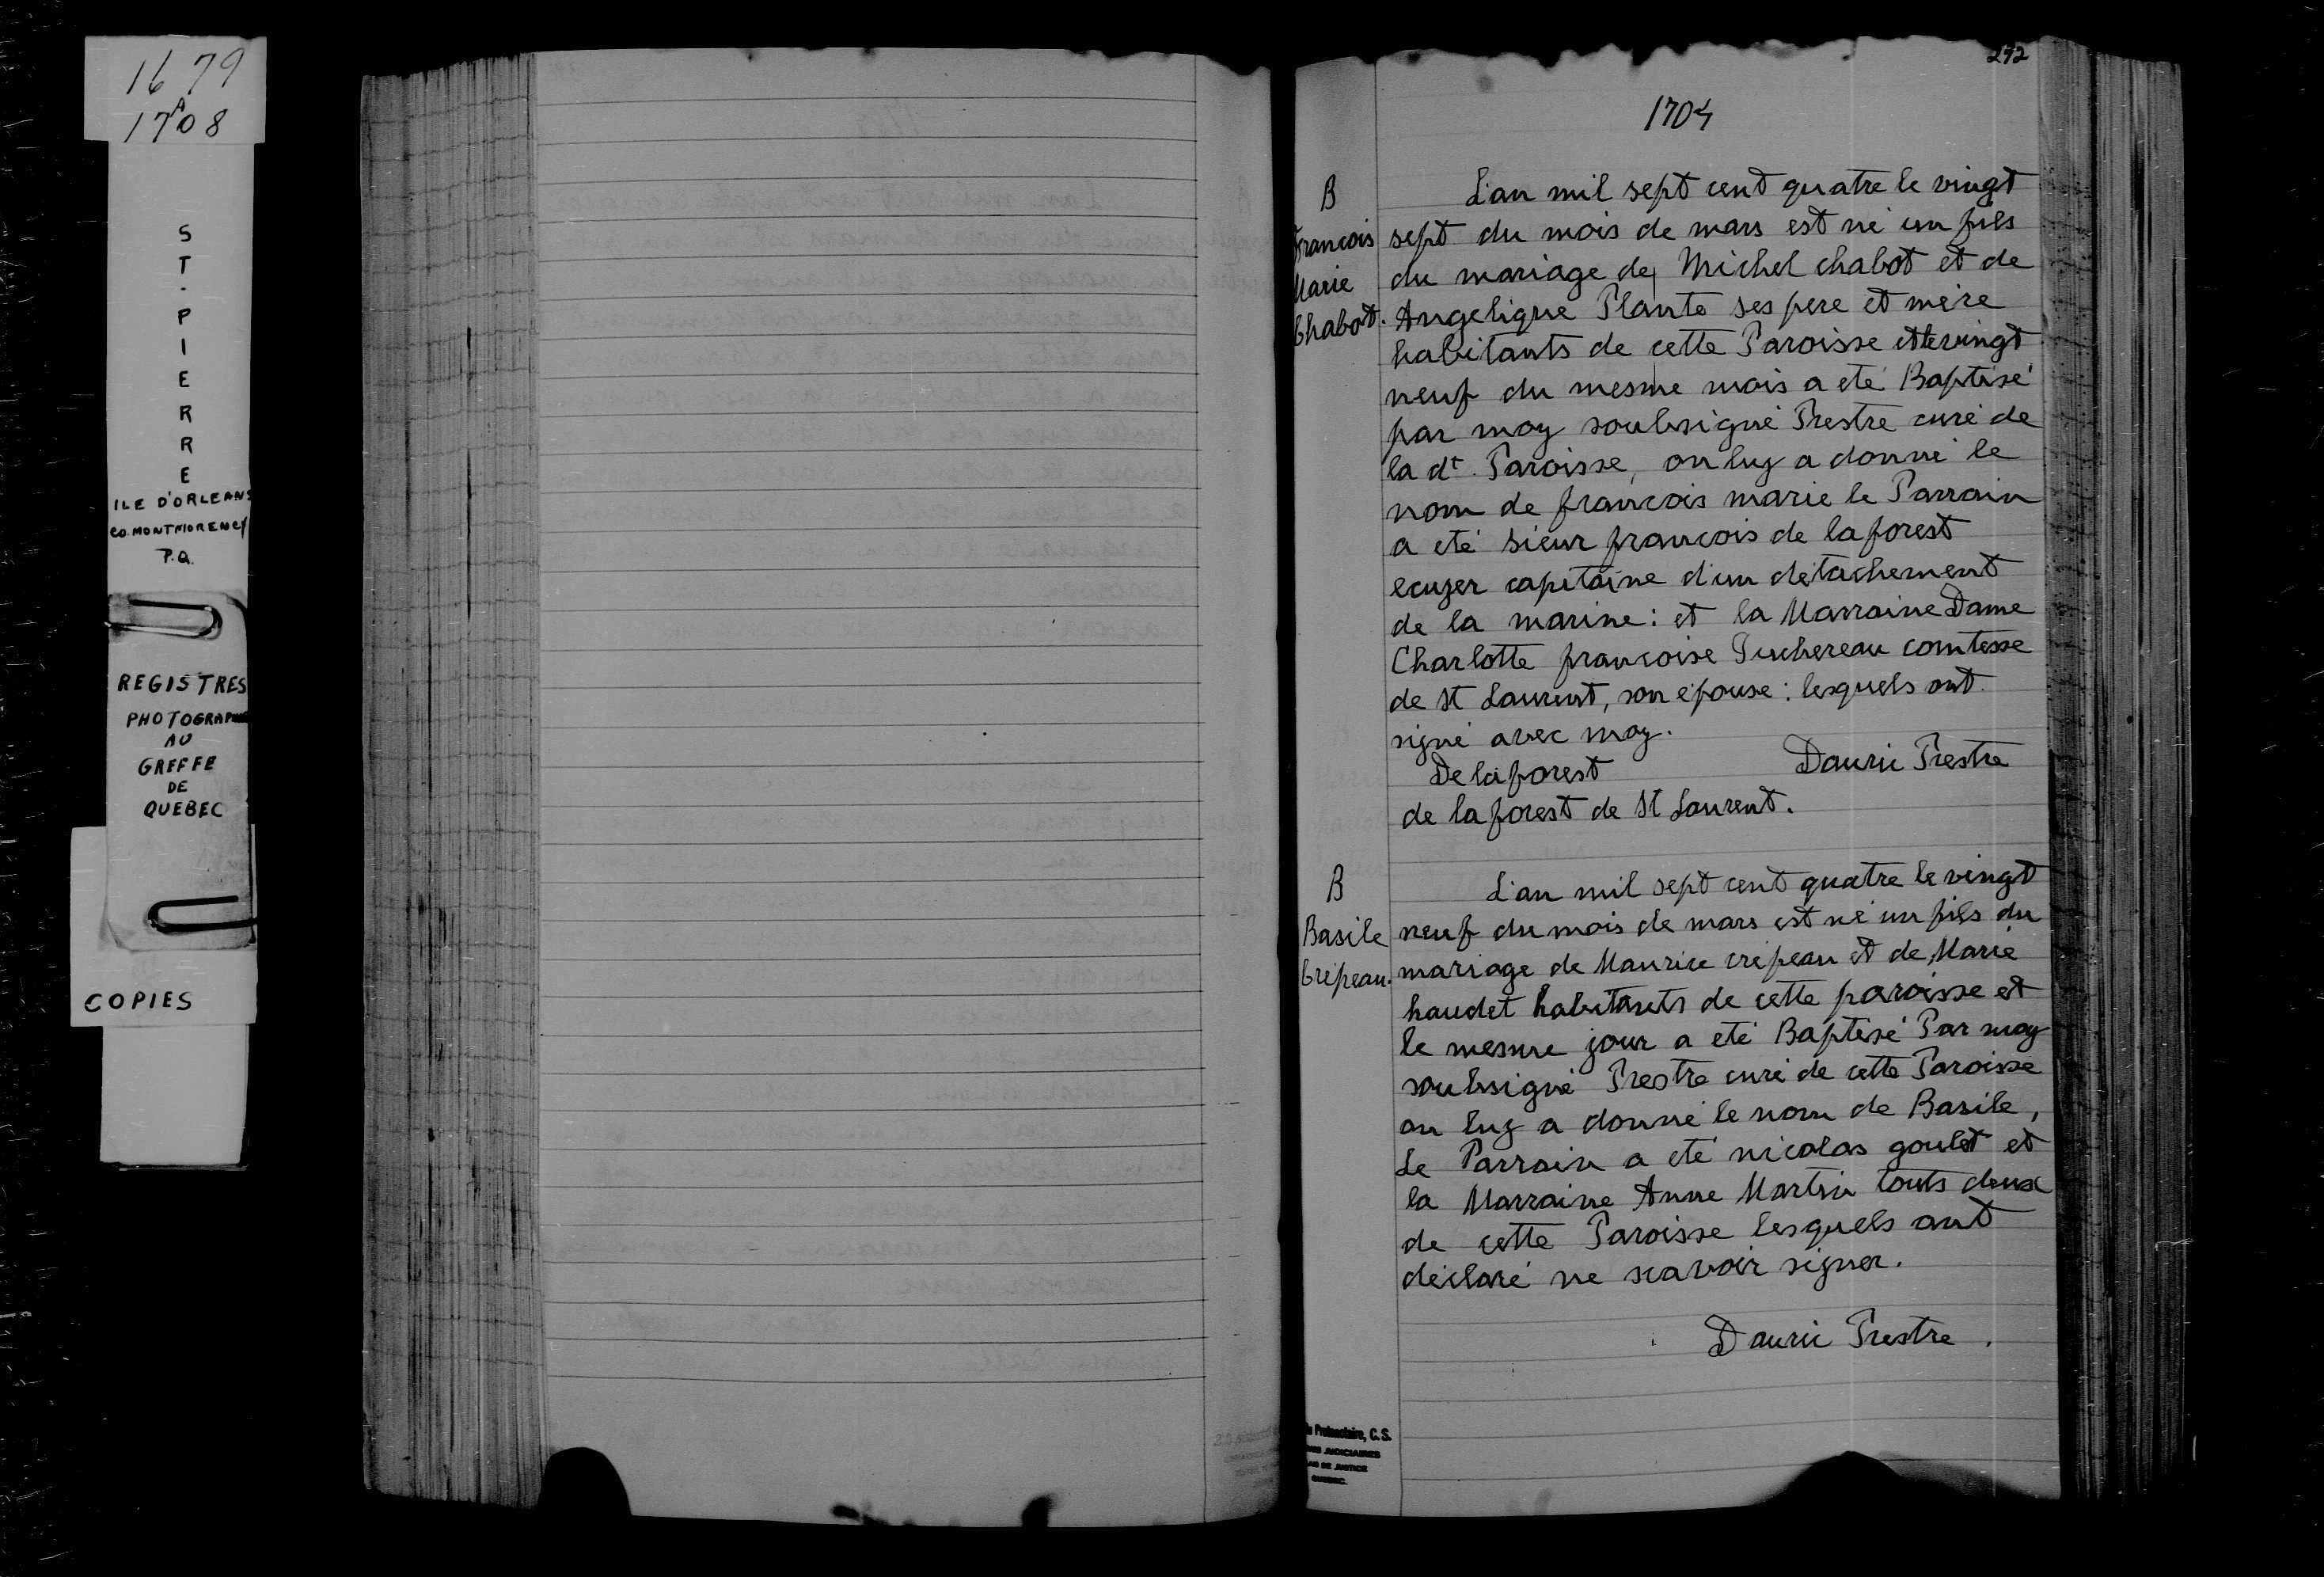 1679
A
1708
ST-PIERRE
ILE D'ORLEANS
CO. MONTMORENCY
P.Q.
REGISTRES
PHOTOGRAPHIE
AU
GREFFE
DE
QUEBEC
COPIES
272
1704
B
Francois
Marie
Chabot.
L'an mil sept cent quatre le vingt
sept du mois de mars est né un fils
du mariage de Michel chabot et de
Angelique Plante ses pere et mère
habitants de cette Paroisse et le vingt
neuf du mesme mois a eté Baptisé
par moy soubsigné Prestre curé de
la dt. Paroisse, on luy a donné le
nom de francois marie le Parrain
a eté sieur francois de laforest
ecuyer capitaine d'un détachement
de la marine: et la Marraine Dame
Charlotte francoise Juchereau comtesse
de St Laurent, son épouse: lesquels ont
signé avec moy.
De laforest Dauric Prestre
de laforest de St Laurent.
B
Basile
Crépeau.
L'an mil sept cent quatre le vingt
neuf du mois de mars est né un fils du
mariage de Maurice crépeau et de Marie
haudet habitants de cette paroisse et
le mesme jour a eté Baptisé Par moy
soubsigné Prestre curé de cette Paroisse
on luy a donné le nom de Basile,
Le Parrain a eté nicolas goulet et
la Marraine Anne Martin touts deux
de cette Paroisse lesquels ont
déclaré ne scavoir signer.
Dauric Prestre.
Protonotaire, C. S.
JUDICIAIRES
DE JUSTICE
QUEBEC.